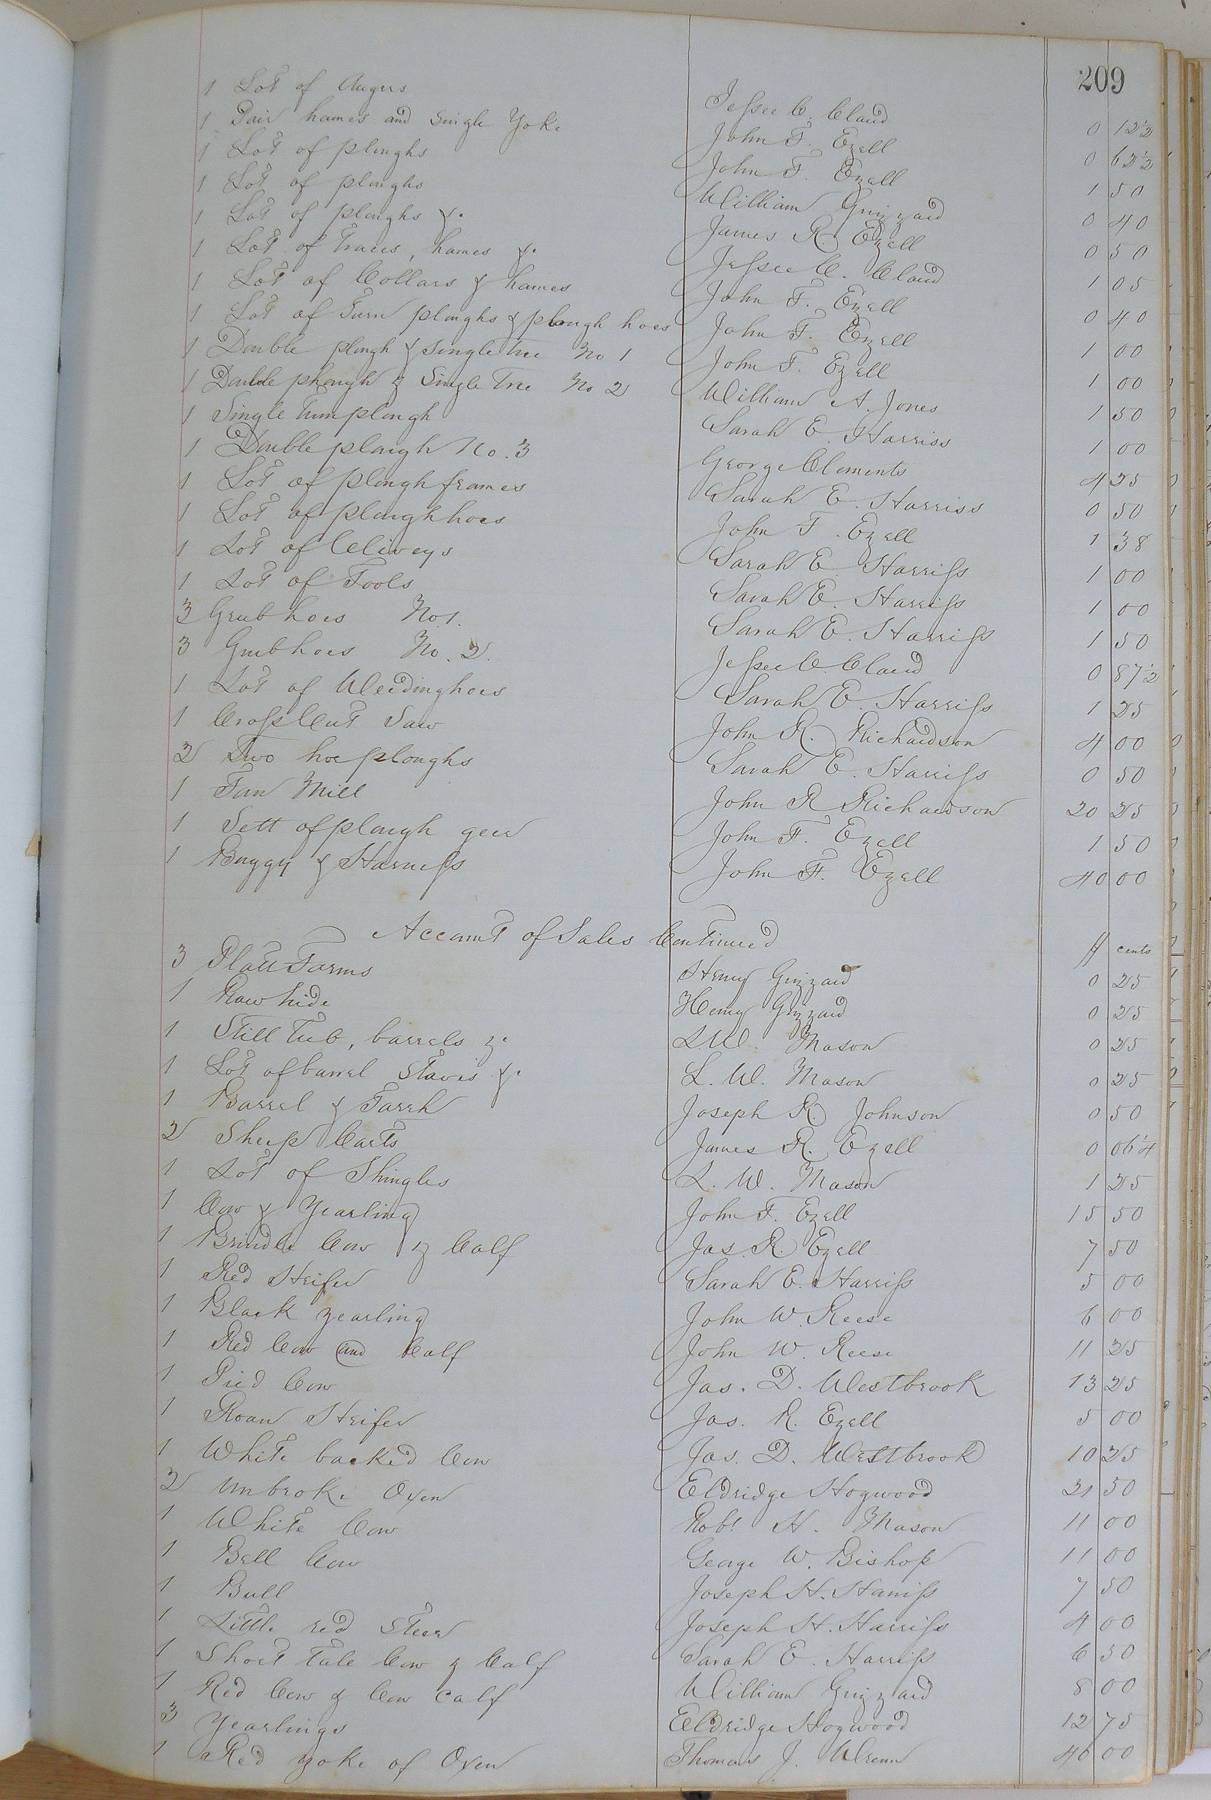 209
1 Lot of Augers Jessee C. Claud 0 12½
1 Pair hames and Single Yoke John F. Ezell 0 62½
1 Lot of ploughs John F. Ezell 1 50
1 Lot of ploughs William Grizzard 0 40
1 Lot of ploughs &. James R. Ezell 0 50
1 Lot of Traces, hames &. Jessee C. Claud 1 05
1 Lot of Collars & hames John F. Ezell 0 40
1 Lot of Turn ploughs & plough hoes John F. Ezell 1 00
1 Double plough & Single Tree No 1 John F. Ezell 1 00
1 Double plough & Single Tree No 2 William A. Jones 1 50
1 Single Turn plough Sarah E. Harriss 1 00
1 Double plough No. 3 George Clements 4 25
1 Lot of plough frames Sarah E. Harriss 0 50
1 Lot of plough hoes John F. Ezell 1 38
1 Lot of Cliveys Sarah E. Harriss 1 00
1 Lot of Tools Sarah E. Harriss 1 00
3 Grub hoes No 1. Sarah E. Harriss 1 50
3 Grub hoes No. 2. Jessee C. Claud 0 87½
1 Lot of Weeding hoes Sarah E. Harriss 1 25
1 Cross Cut Saw John R. Richardson 4 00
2 Two hoe ploughs Sarah E. Harriss 0 50
1 Fan Mill John R Richardson 20 25
1 Sett of plough geer John F. Ezell 1 50
1 Buggy & Harness John F. Ezell 40 00
Account of Sales Continued $ cents
3 Platt Forms Henry Grizzard 0 25
1 Raw hide Henry Grizzard 0 25
1 Still Tub, barrels &. L. W. Mason 0 25
1 Lot of barrel Staves &. L. W. Mason 0 25
1 Barrel & Tarrh Joseph R. Johnson 0 50
2 Sheep Carts James R. Ezell 0 06¼
1 Lot of Shingles L. W. Mason 1 25
1 Cow & Yearling John F. Ezell 15 50
1 Brindle Cow & Calf Jas. R. Ezell 7 50
1 Red Heifer Sarah E. Harriss 5 00
1 Black yearling John W. Reese 6 00
1 Red Cow and Calf John W. Reese 11 25
1 Pied Cow Jas. D. Westbrook 13 25
1 Roan Heifer Jas. R. Ezell 5 00
1 White backed Cow Jas. D. Westbrook 10 25
2 Unbroke Oxen Eldridge Hogwood 31 50
1 White Cow Robt H. Mason 11 00
1 Bell Cow George W. Bishop 11 00
1 Bull Joseph H. Harriss 7 50
1 Little red Steer Joseph H. Harriss 4 00
1 Short tale Cow & Calf Sarah E. Harriss 6 50
1 Red Cow & Cow calf William Grizzard 8 00
3 Yearlings Eldridge Hogwood 12 75
1 Red yoke of Oxen Thomas J. Wrenn 40 00